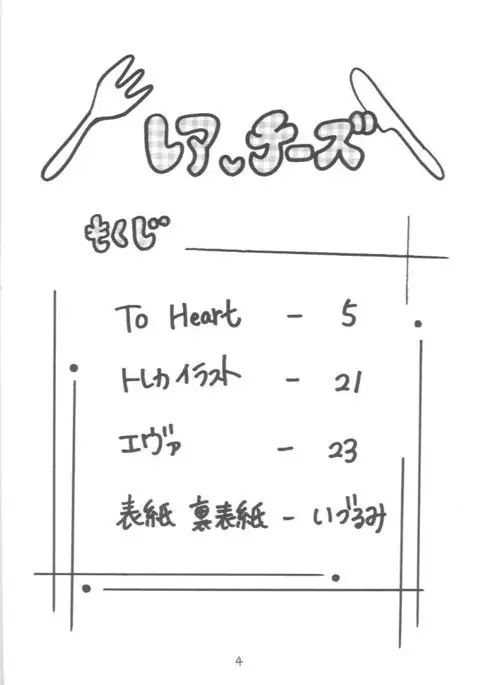 レアチーズ
もくじ
To Heart - 5
トレカイラスト - 21
エヴァ - 23
表紙 裏表紙 - いづるみ
4